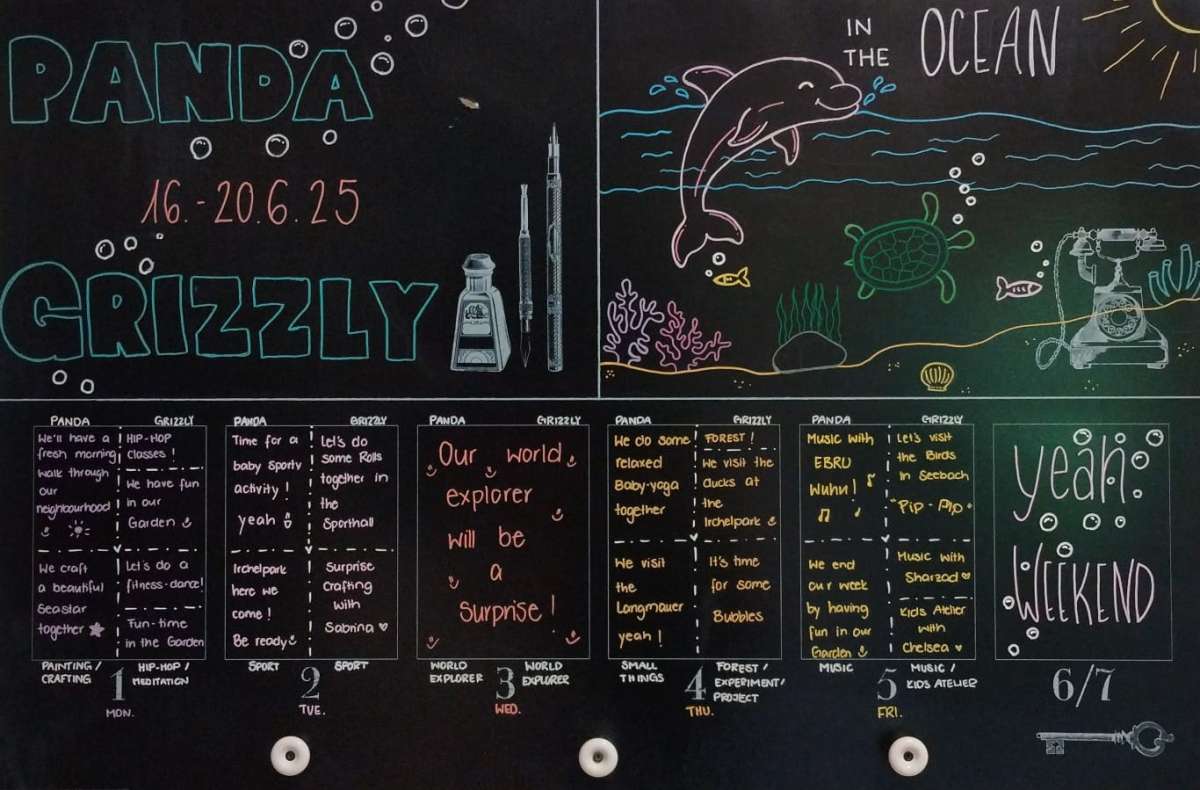 PANDA
16.-20.6.25
GRIZZLY
IN
THE
OCEAN
PANDA
GRIZZLY
We'll have a
fresh morning
walk through
our
neighbourhood
HIP-HOP
Classes!
We have fun
in our
Garden
We craft
a beautiful
Seastar
together
Let's do a
fitness-dance!
Fun-time
in the Garden
PAINTING/
CRAFTING
HIP-HOP/
MEDITATION
1
MON.
PANDA
GRIZZLY
Time for a
baby sporty
activity!
yeah
Let's do
some Rolls
together in
the
Sporthall
Irchelpark
here we
come!
Be ready
Surprise
Crafting
with
Sabrina
SPORT
SPORT
2
TUE.
PANDA
GRIZZLY
Our world
explorer
will be
a
Surprise!
WORLD
EXPLORER
WORLD
EXPLORER
3
WED.
PANDA
GRIZZLY
We do some
relaxed
Baby-yoga
together
FOREST!
We visit the
ducks at
the
Irchelpark
We visit
the
Langmauer
yeah!
It's time
for some
Bubbles
SMALL
THINGS
FOREST/
EXPERIMENT/
PROJECT
4
THU.
PANDA
GRIZZLY
Music with
EBRU
Wuhu!
Let's visit
the Birds
in Seebach
"Pip-Pip"
We end
our week
by having
fun in our
Garden
Music with
Sharzad
Kids Atelier
with
Chelsea
MUSIC
MUSIC/
KIDS ATELIER
5
FRI.
yeah
WEEKEND
6/7